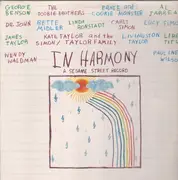 GEORGE BENSON
THE DOOBIE BROTHERS
COOKIE MONSTER
AL JARREAU
DR. JOHN
BETTE MIDLER
LINDA RONSTADT
CARLY SIMON
LUCY SIMON
JAMES TAYLOR
KATE TAYLOR and the SIMON/TAYLOR FAMILY
LIVINGSTON TAYLOR
WENDY WALDMAN
IN HARMONY
A SESAME STREET RECORD